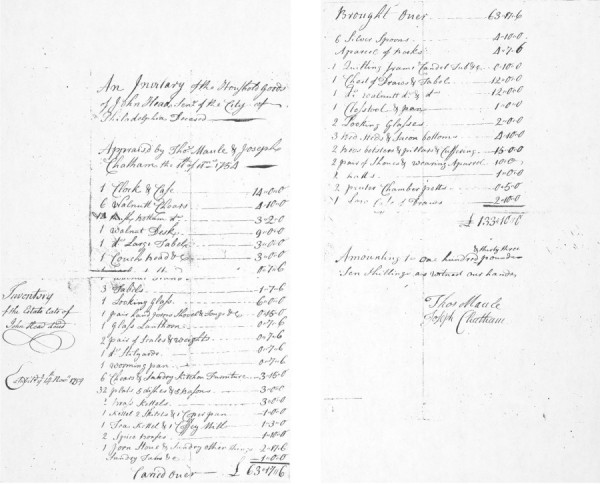 An Inventary of the Houshold Goods
of John Head Senr. of the City of
Philadelphia Deceasd
Appraised by Thos. Maule & Joseph
Chatham the 1754
1 Clock & Case 14-0-0
6 Walnutt Chears 4-10-0
3-2-0
1 walnut Desk 9-0-0
1 do Large Table 3-0-0
1 Couch 3-0-0
0-7-6
3 Tabels 1-7-6
1 Looking Glass 6-0-0
1 pair hand Irons Shovel & Tongs &c 0-15-0
1 Glass Lanthorn 0-7-6
2 pair of Scales & weights 0-7-6
1 do Stilyards 0-7-6
1 warming pan 0-7-6
6 Chears & Sundry Kitchen Furniture 3-15-0
32 plats 8 dishes & basons 3-0-0
2 brass Kettels 3-0-0
1 Kittel 2 Skilets & 1 pan 1-0-0
1 Tea Kittel & 1 Coffey Mill 1-3-0
2 Spice boxses 1-10-0
1 Jorn Stove & Sundry other things 2-17-6
Sundry Tubs &c 1-0-0
Caried over £ 63-17-6
Inventory
of the Estate &c of
John Head decd
Exhibd 4 Novr 1754
Brought Over 63-17-6
6 Silver Spoons 4-10-0
A parcel of books 4-7-6
1 Quilting frame 0-10-0
1 Chest of Draws & Tabel 12-0-0
1 do walnutt do & do 12-0-0
1 Closstool & pan 1-0-0
2 Looking Glasses 2-0-0
3 bed steds & Sacon bottoms 4-10-0
2 beds bolsters & pillows & Coffering 15-0-0
2 pair of Shoues & wearing Aparel 10-0-0
hatts 1-0-0
2 peuter Chamber potts 0-5-0
1 Low of Draws 2-10-0
£ 133-10-0
& thirty three
Amounting to one hundred pounds
Ten Shillings as witness our hands
Thos Maule
Joseph Chatham